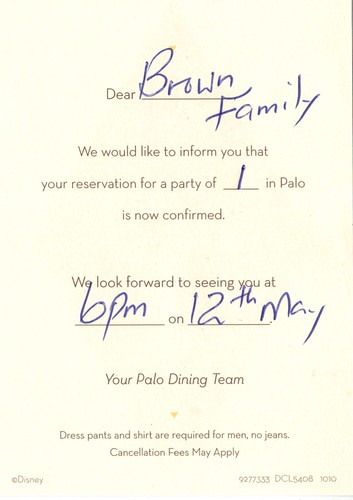 Dear Brown
Family
We would like to inform you that
your reservation for a party of 1 in Palo
is now confirmed.
We look forward to seeing you at
6pm on 12th May.
Your Palo Dining Team
Dress pants and shirt are required for men, no jeans.
Cancellation Fees May Apply
©Disney 9277333 DCL5408 1010